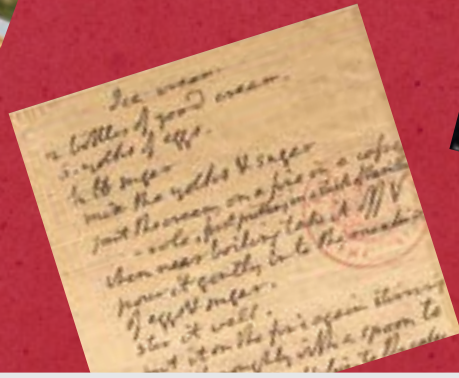 Ice cream.
2 bottles of good cream.
6 yolks of eggs.
1/2 lb sugar
mix the yolks & sugar
put the cream on a fire in a
first putting in a stick of
when near boiling take it off &
pour it gently into the
of eggs & sugar.
stir it well.
put it on the fire again stirring
with a spoon to